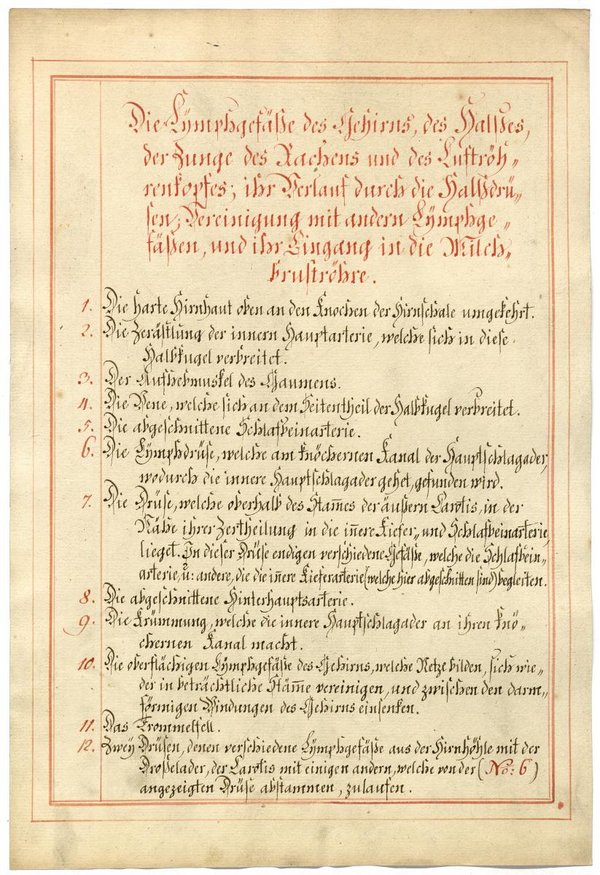 Die Lÿmphgefäße des Gehirns, des Halses,
der Zunge des Rachens und des Luftröh„
renkopfes; ihr Verlauf durch die Halsdrü„
sen; Vereinigung mit andern Lÿmphge„
fäßen, und ihr Eingang in die Milch„
bruströhre.
1. Die harte Hirnhaut oben an den Knochen der Hirnschale umgekehrt.
2. Die Zerästlung der innern Hauptarterie, welche sich in diese
Halbkugel verbreitet.
3. Der Aufhebmuskel des Gaumens.
4. Die Vene, welche sich an dem Seitentheil der Halbkugel verbreitet.
5. Die abgeschnittene Schlafbeinarterie.
6. Die Lÿmphdrüse, welche am knöchernen Kanal der Hauptschlagader,
wodurch die innere Hauptschlagader gehet, gefunden wird.
7. Die Drüse, welche oberhalb des Stam̄es der äußern Carotis, in der
Nähe ihrer Zertheilung in die in̄ere Kiefer„ und Schlafbeinarterie
lieget. In dieser Drüse endigen verschiedene Gefäße, welche die Schlafbein„
arterie, u: andere, die die in̄ere Kieferarterie (welche hier abgeschnitten sind) begleiten.
8. Die abgeschnittene Hinterhauptsarterie.
9. Die Krümmung, welche die innere Hauptschlagader an ihren knö„
chernen Kanal macht.
10. Die oberflächigen Lÿmphgefäße des Gehirns, welche Netze bilden, sich wie„
der in beträchtliche Stäm̄e vereinigen, und zwischen den darm„
förmigen Windungen des Gehirns einsenken.
11. Das Trommelfell.
12. Zweÿ Drüsen, denen verschiedene Lÿmphgefäße aus der Hirnhöhle mit der
Droßelader, der Carotis mit einigen andern, welche von der (No: 6)
angezeigten Drüse abstammen, zulaufen.